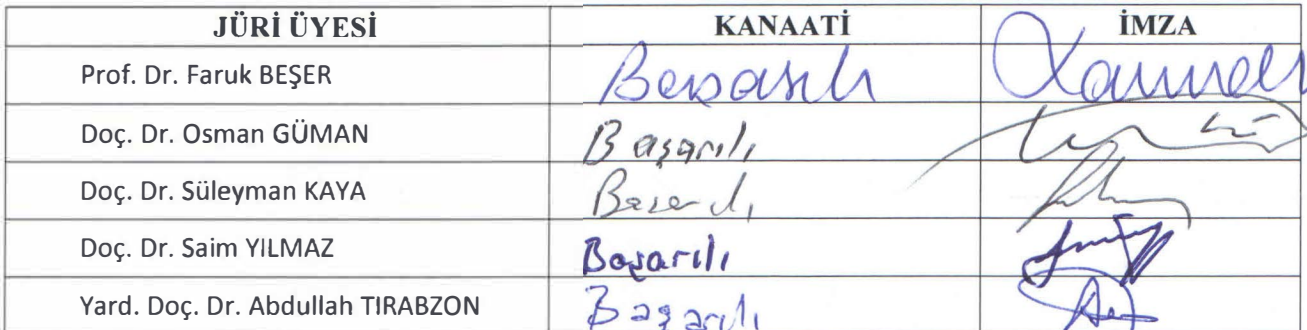 JÜRİ ÜYESİ KANAATİ İMZA
Prof. Dr. Faruk BEŞER Başarılı
Doç. Dr. Osman GÜMAN Başarılı
Doç. Dr. Süleyman KAYA Başarılı
Doç. Dr. Saim YILMAZ Başarılı
Yard. Doç. Dr. Abdullah TIRABZON Başarılı